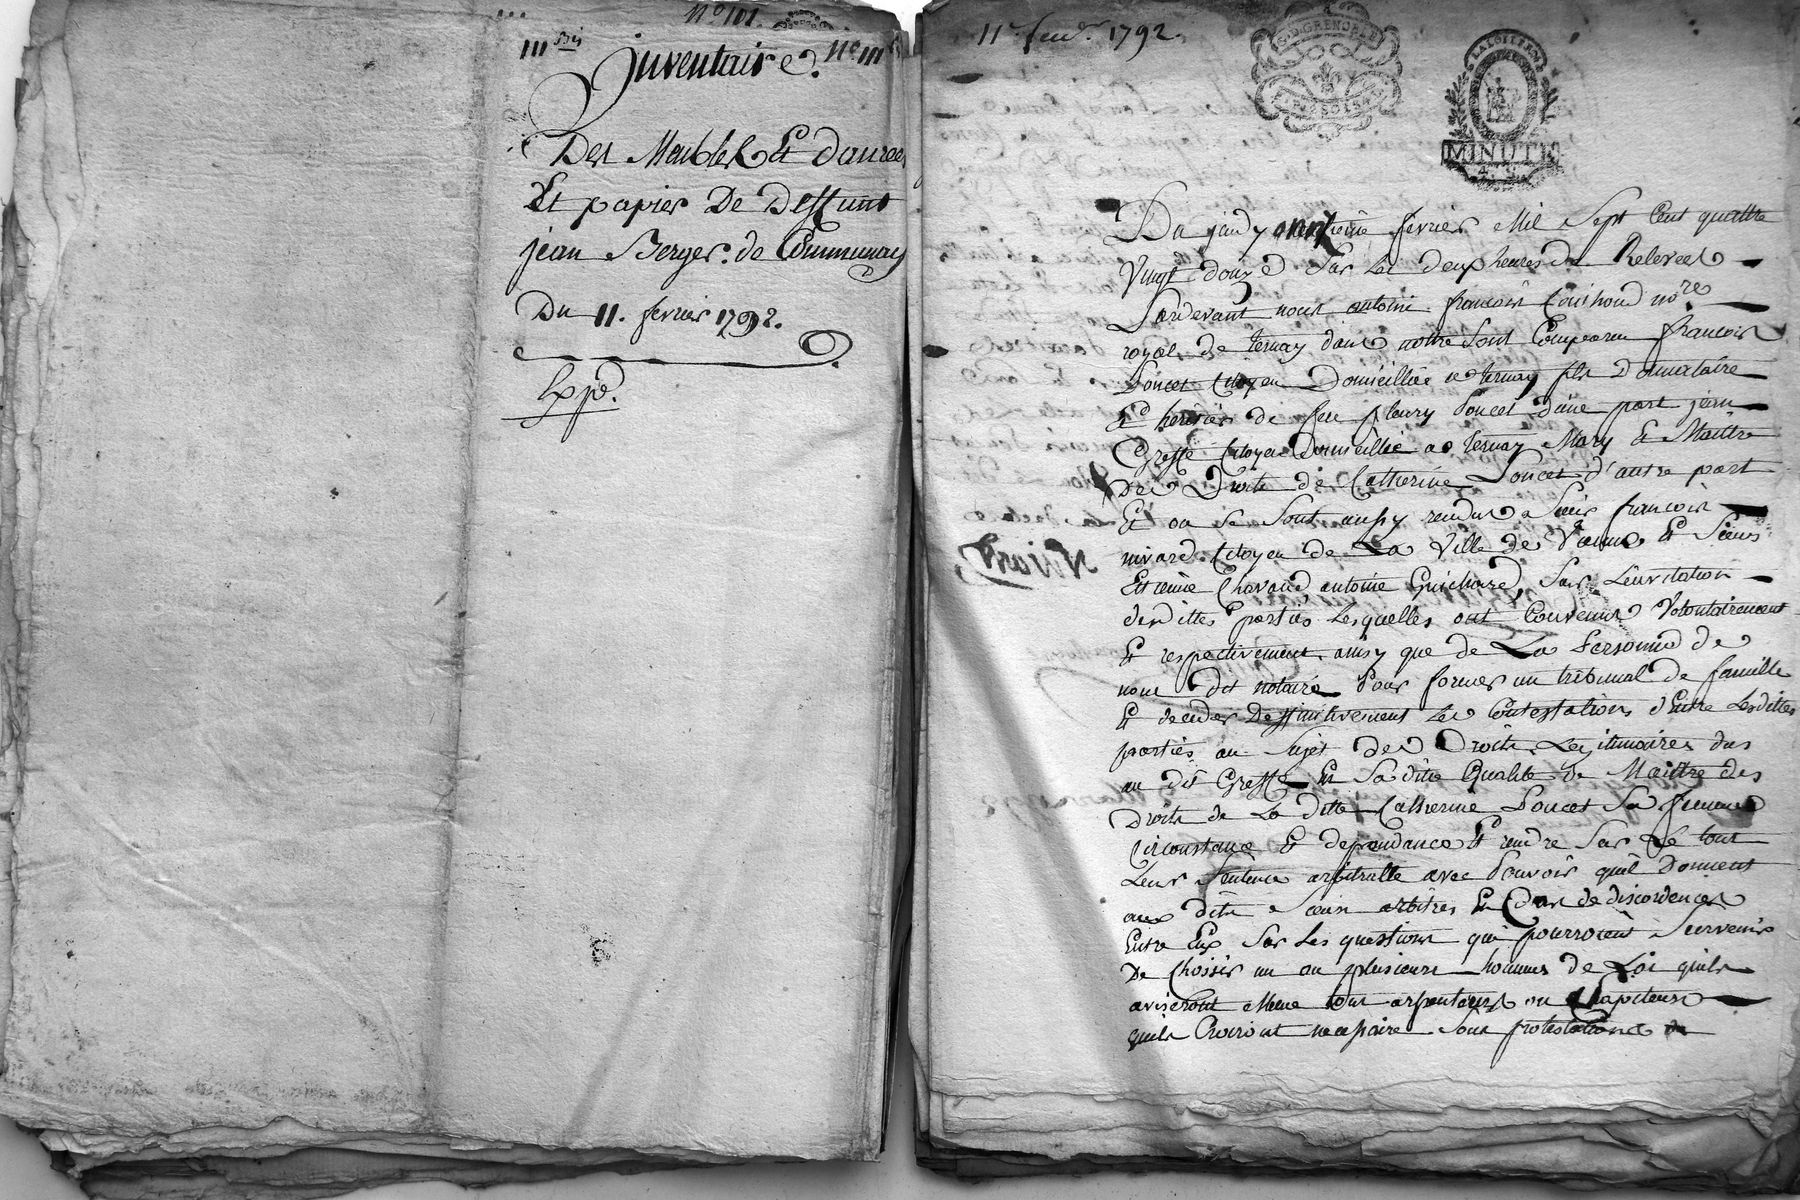 N° 101.
111 Bis
Juventaire. N° 111
Des Meubles Et danree
Et papier De Deffunt
jean Berger. de Communay
Du 11. fevrier 1792.
Exp.
11e fevr. 1792.
G.D. GRENOBLE
LA LOI LE ROI
MINUTE
4 S.
Du jeudy fevrier Mil Sept Cent quattre
Vingt douze Sur les deux heures de Relevee
Pardevant nous antoine francois Couchoud nore
royal de ternay dans notre Sont Comparu francois
Poncet Citoyen Domicillié a ternay fils Donnataire
Et heritier de feu fleury Poncet d'une part jean
Greffe Citoyen Domicillié a ternay Mary Et Maitre
Des Droits de Catherine Poncet d'autre part
Et ou Se Sont aussy rendus Sieur francois
nivard Citoyen de La Ville de Vienne Et Sieurs
Estienne Chavand antoine Guichard, Sur L'invitation
desdittes parties Lesquelles ont Convenus Volontairement
Et respectivement ainsy que de La Personne de
nous dit notaire Pour former un tribunal de famille
Et decider Deffinitivement Les Contestations d'Entre Lesdittes
parties au Sujet des Droits Legitimaires dus
au dit Greffe En Sa ditte Qualité de Maitre des
Droits de La ditte Catherine Poncet Sa femme
Circonstance Et dependance Et rendre Sur Le tout
Leur Sentence arbitralle avec Pouvoir quil Donnent
aux dits Sieurs arbitres En Cas de discordence
Entre Eux Sur Les questions qui pourroient Survenir
De Choisir un ou plusieurs hommes de Loi quils
aviseront Meme tous arpenteurs ou
quils Croiront necessaire Sous protestation de
Nivard